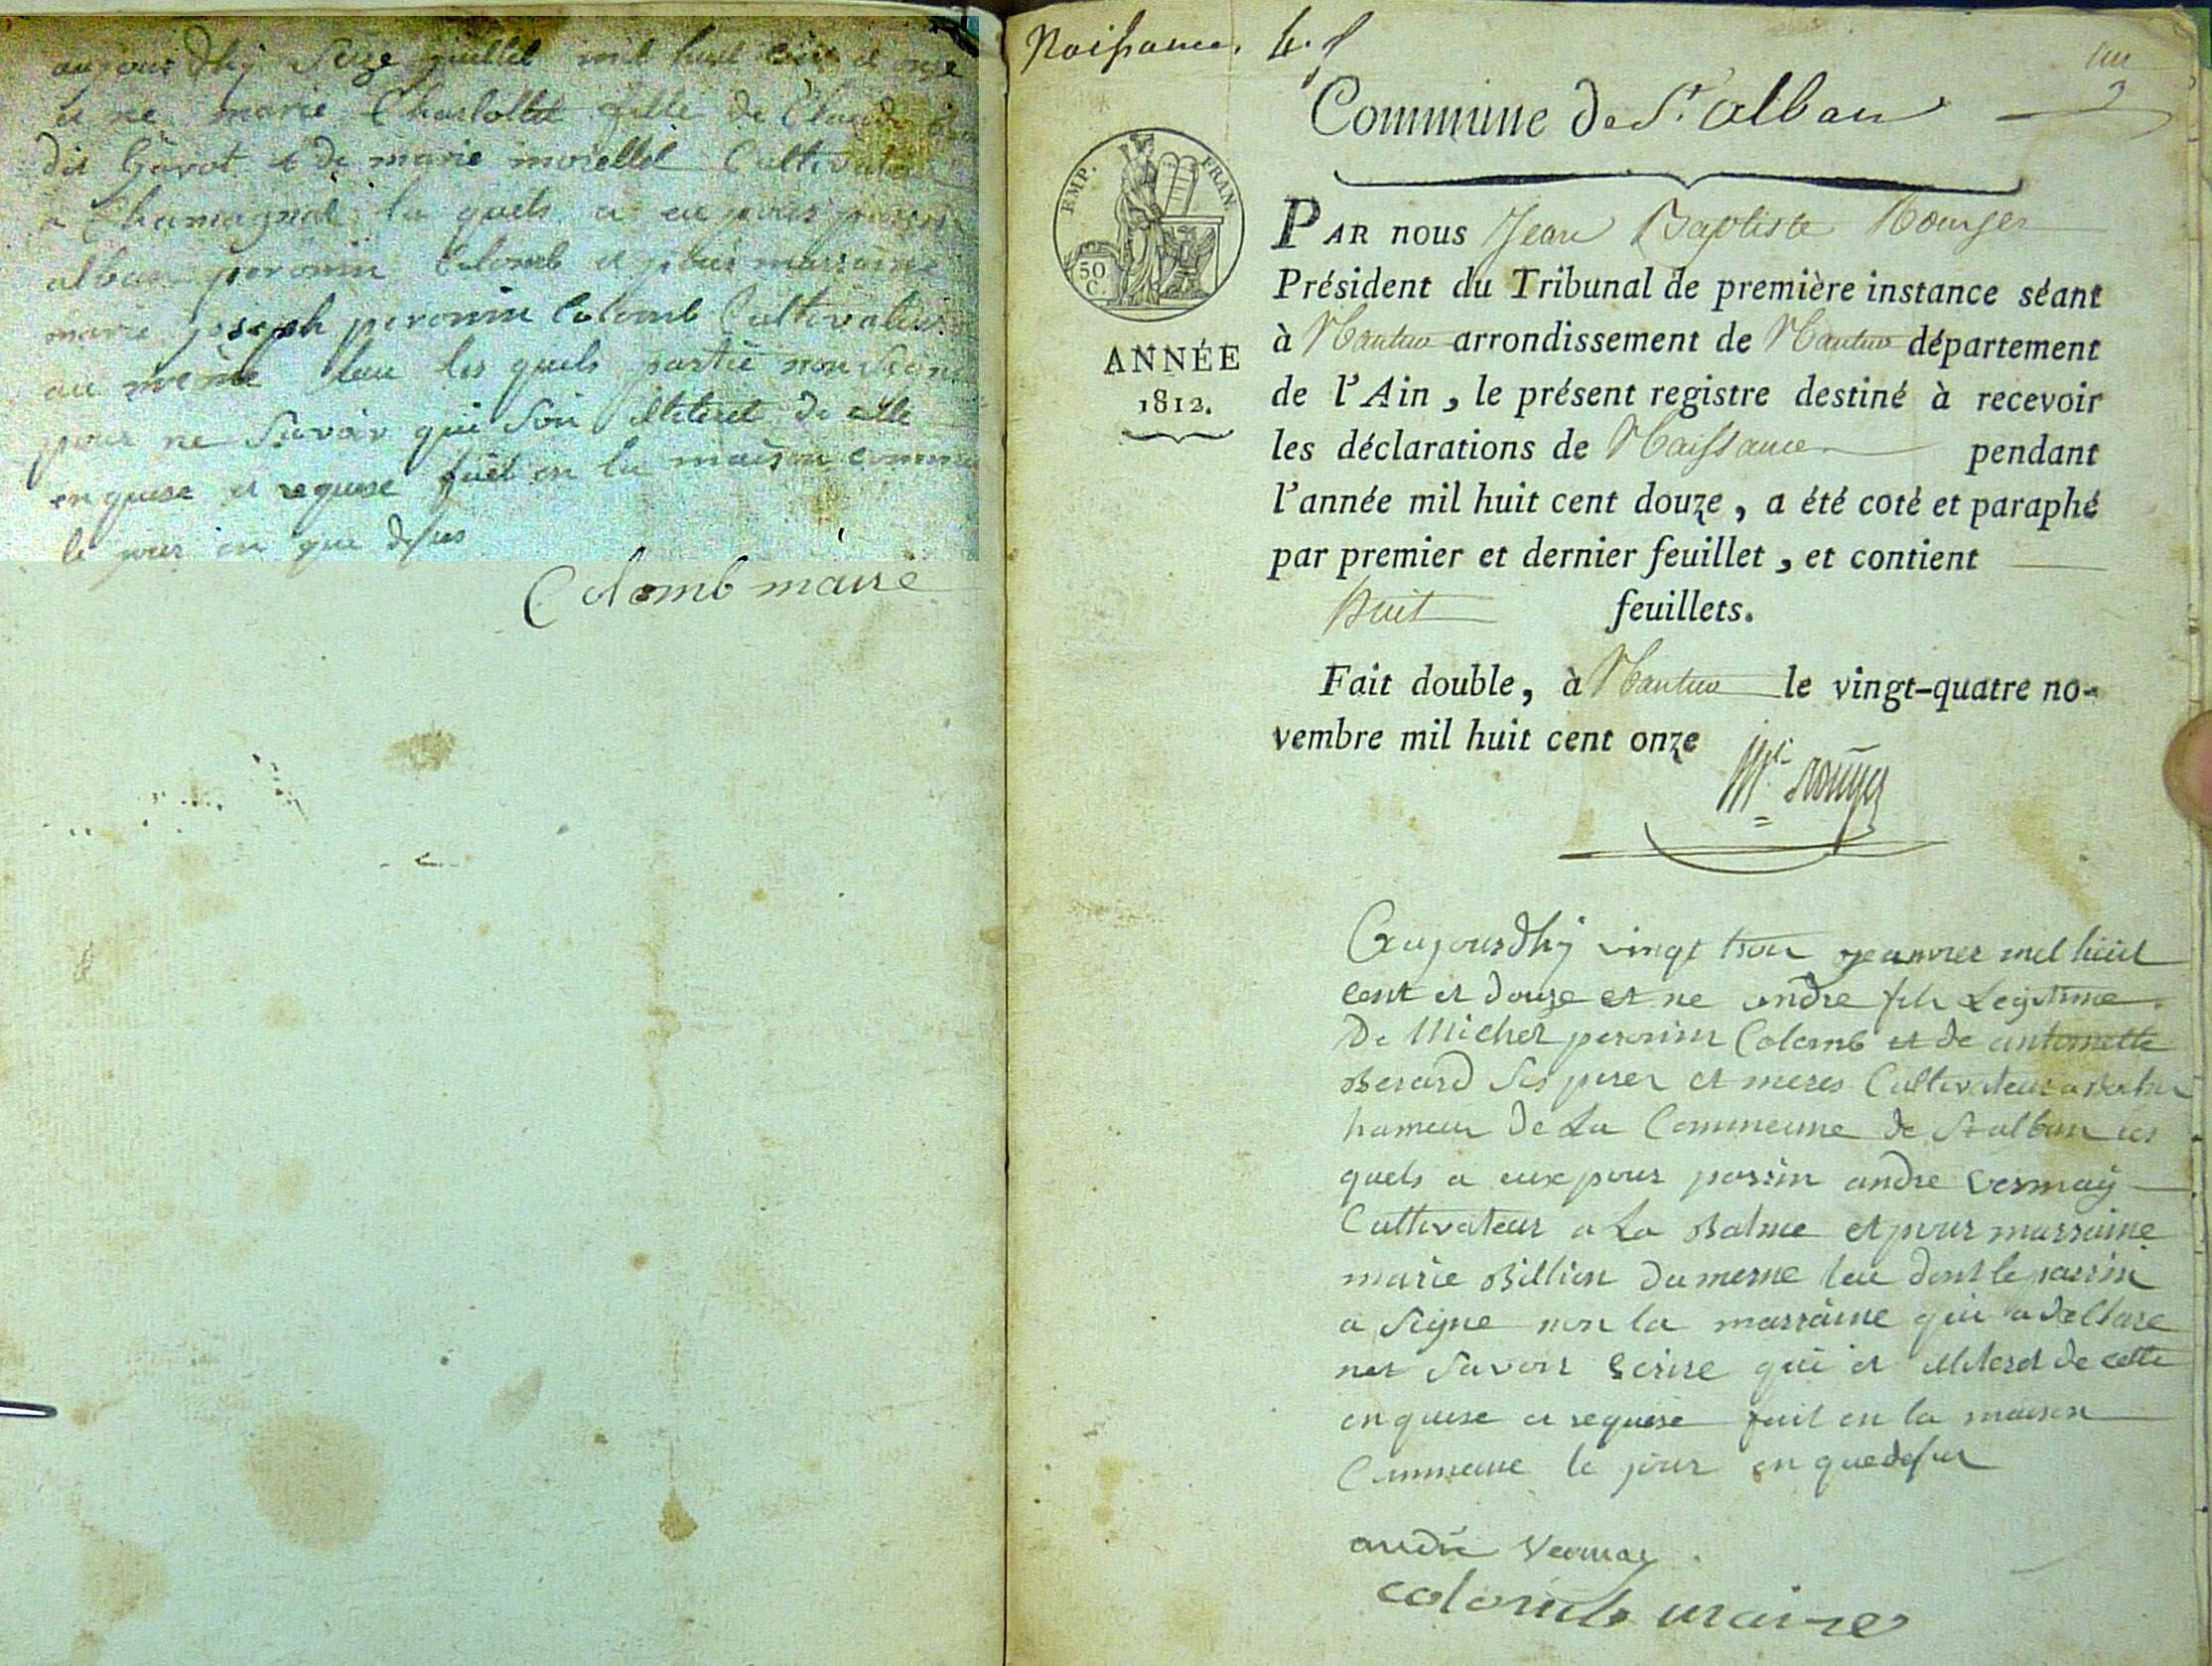 aujourdhy Seize juillet mil huit cent et onze
et ne marie Charlotte fille de Claude
dit Gavot et de marie morellet Cultivateur
a Chamagnat la quels a eu pour parrin
alban peronin Colomb et pour marraine
marie joseph peronin Colomb Cultivateur
au mème lieu les quels partie non Signe
pour ne Savoir qui Son illiteret de cette
enquise et requise fait en la maison commune
le jour en que desus
Colomb maire
Naissance.
Commune de St. alban
un
EMP. FRAN
50 C.
ANNÉE
1812.
PAR nous Jean Baptiste Rouyer
Président du Tribunal de première instance séant
à Nantua arrondissement de Nantua département
de l'Ain, le présent registre destiné à recevoir
les déclarations de Naissance pendant
l'année mil huit cent douze, a été coté et paraphé
par premier et dernier feuillet, et contient
huit feuillets.
Fait double, à Nantua le vingt-quatre no-
vembre mil huit cent onze
rouyer
Aujourdhy vingt trois jeanvier mil huit
cent et douze et ne andre fils Legitime
De Michel peronin Colomb et de antoinette
Berard Ses peres et meres Cultivateur a
hameau de La Commeune de St alban les
quels a eux pour parrin andre Vernay
Cultivateur a La Balme et pour marraine
marie Billion du meme lieu dont le parrin
a Signe non la marraine qui a declare
net Savoir Ecrire qui et illiteret de cette
enquise et requise fait en la maison
Commeune le jour en que desus
andré Vernay
colomb maire